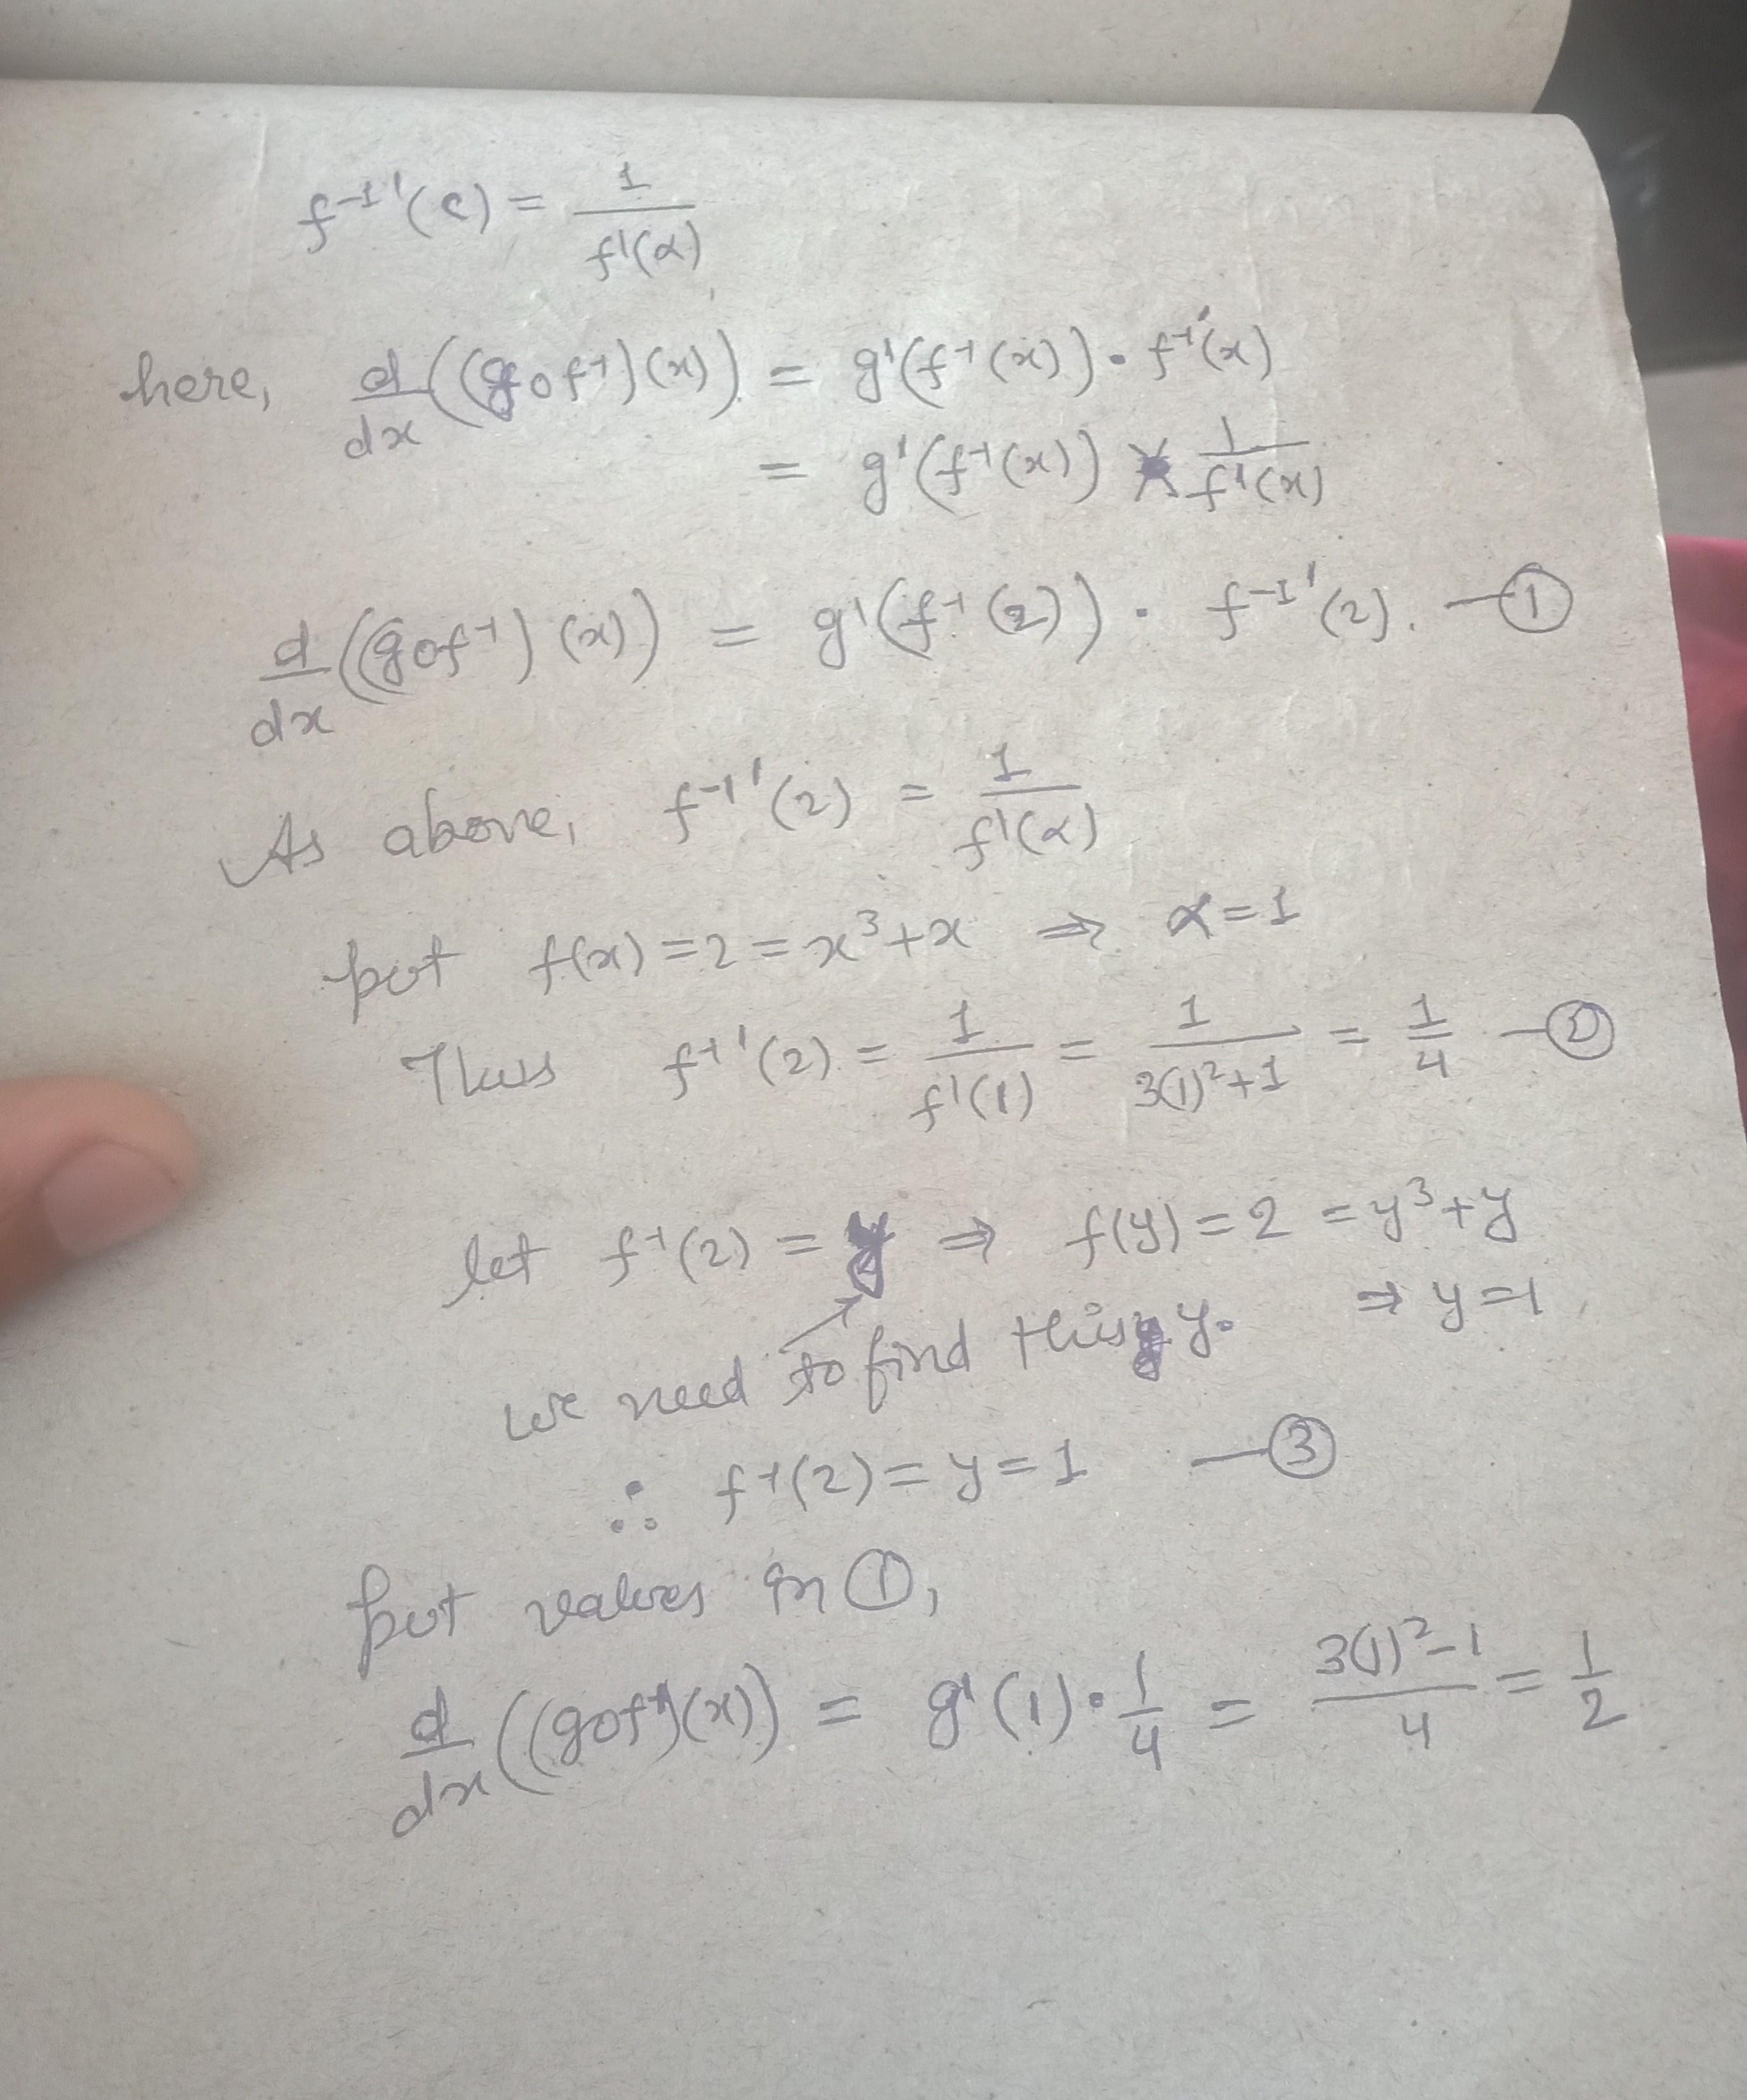 f⁻¹'(c) = 1/f'(α)
here, d/dx((gof⁻¹)(x)) = g'(f⁻¹(x)) • f⁻¹'(x)
= g'(f⁻¹(x)) × 1/f'(x)
d/dx((gof⁻¹)(x)) = g'(f⁻¹(2)) · f⁻¹'(2). —①
As above, f⁻¹'(2) = 1/f'(α)
put f(x) = 2 = x³+x ⇒ α=1
Thus f⁻¹'(2) = 1/f'(1) = 1/(3(1)²+1) = 1/4 —②
let f⁻¹(2) = y ⇒ f(y) = 2 = y³+y
⇒ y=1,
we need to find this y.
∴ f⁻¹(2) = y = 1 —③
put values in ①,
d/dx((gof⁻¹)(x)) = g'(1) • 1/4 = (3(1)²-1)/4 = 1/2